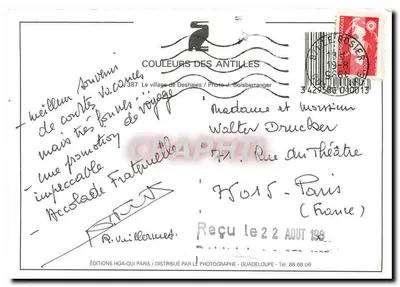 COULEURS DES ANTILLES
387 Le village de Deshaies / Photo J. Boisberranger
BAIE
19-8
3 429588 090013
- meilleur souvenir
de courtes vacances
mais très
- une promotion de voyage
impeccable
- Accolade Fraternelle
R. Vuillermet
Madame et Monsieur
Walter Drucker
71. Rue du Théâtre
75015 - Paris
(France)
Reçu le 22 AOUT 198
ÉDITIONS HOA-QUI PARIS / DISTRIBUÉ PAR LE PHOTOGRAPHE - GUADELOUPE - Tél. 86.68.06